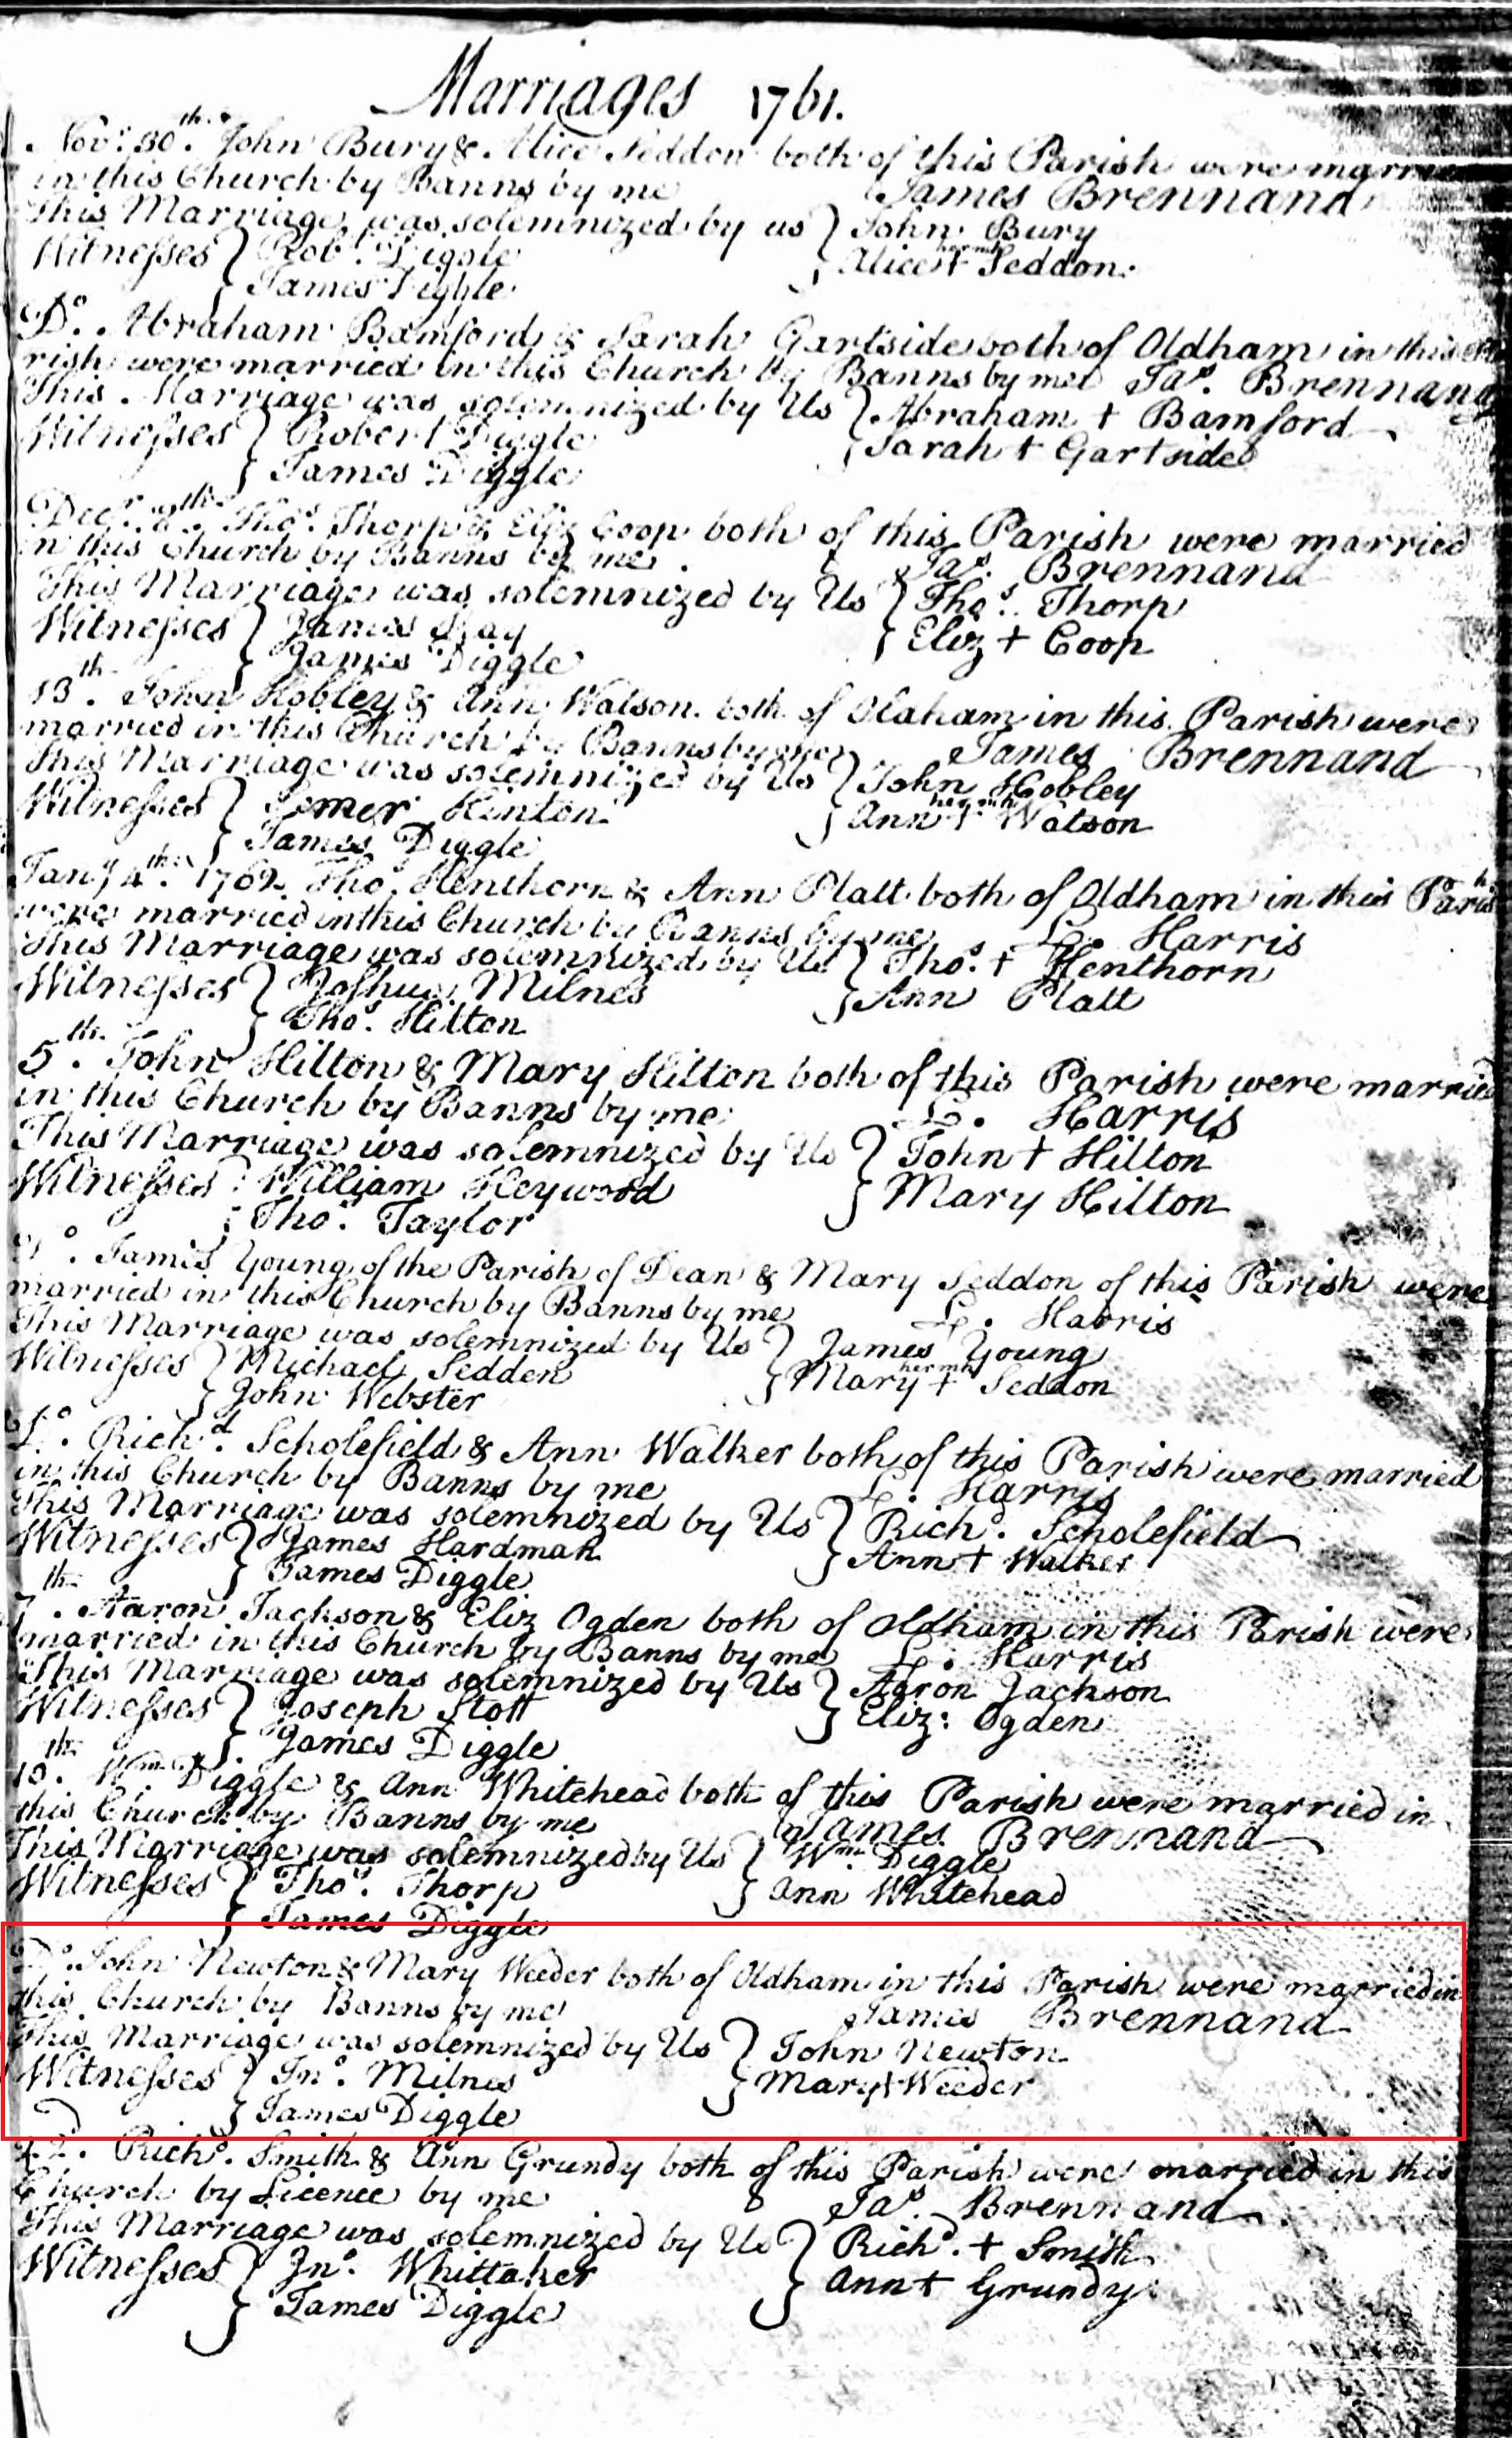 Marriages 1761.
Novr. 30th. John Bury & Alice Seddon both of this Parish were marrie
in this Church by Banns by me James Brennand
This Marriage was solemnized by us } John Bury
Witnesses } Robt. Diggle Alice her mk + Seddon.
James Diggle
Do. Abraham Bamford & Sarah Gartside both of Oldham in this Pa
rish were married in this Church by Banns by me Jas. Brennand
This Marriage was solemnized by Us } Abraham + Bamford
Witnesses } Robert Diggle Sarah + Gartside
James Diggle
Decr. Thos. Thorp & Eliz Coop both of this Parish were married
in this Church by Banns by me. Jas. Brennand
This Marriage was solemnized by Us } Thos. Thorp
Witnesses } James Kay Eliz + Coop
James Diggle
13th. John Hobley & Ann Watson both of Oldham in this Parish were
married in this Church by Banns by me James Brennand
This Marriage was solemnized by Us } John Hobley
Witnesses } Hinton Ann her mk + Watson
James Diggle
Jany 4th. 1762 Thos. Henthorn & Ann Platt both of Oldham in this Parish
were married in this Church by Banns by me L. Harris
This Marriage was solemnized by Us } Thos. + Henthorn
Witnesses } Joshua Milnes Ann Platt
Thos. Hilton
5th. John Hilton & Mary Hilton both of this Parish were married
in this Church by Banns by me L. Harris
This Marriage was solemnized by Us } John + Hilton
Witnesses } William Heywood Mary Hilton
Thos. Taylor
Do. James Young of the Parish of Dean & Mary Seddon of this Parish were
married in this Church by Banns by me L. Harris
This Marriage was solemnized by Us } James Young
Witnesses } Michael Sedden Mary her mk + Seddon
John Webster
Do. Richd. Scholefield & Ann Walker both of this Parish were married
in this Church by Banns by me L. Harris
This Marriage was solemnized by Us } Richd. Scholefield
Witnesses } James Hardman Ann + Walker
James Diggle
7th. Aaron Jackson & Eliz Ogden both of Oldham in this Parish were
married in this Church by Banns by me L. Harris
This Marriage was solemnized by Us } Aaron Jackson
Witnesses } Joseph Stott Eliz: Ogden
James Diggle
10th. Wm. Diggle & Ann Whitehead both of this Parish were married in
this Church by Banns by me James Brennand
This Marriage was solemnized by Us } Wm. Diggle
Witnesses } Thos. Thorp Ann Whitehead
James Diggle
Do. John Newton & Mary Weeder both of Oldham in this Parish were married in
this Church by Banns by me James Brennand
This Marriage was solemnized by Us } John Newton
Witnesses } Jno. Milnes Mary + Weeder
James Diggle
Richd. Smith & Ann Grundy both of this Parish were married in this
Church by Licence by me Jas. Brennand
This Marriage was solemnized by Us } Richd. + Smith
Witnesses } Jno. Whittaker Ann + Grundy
James Diggle